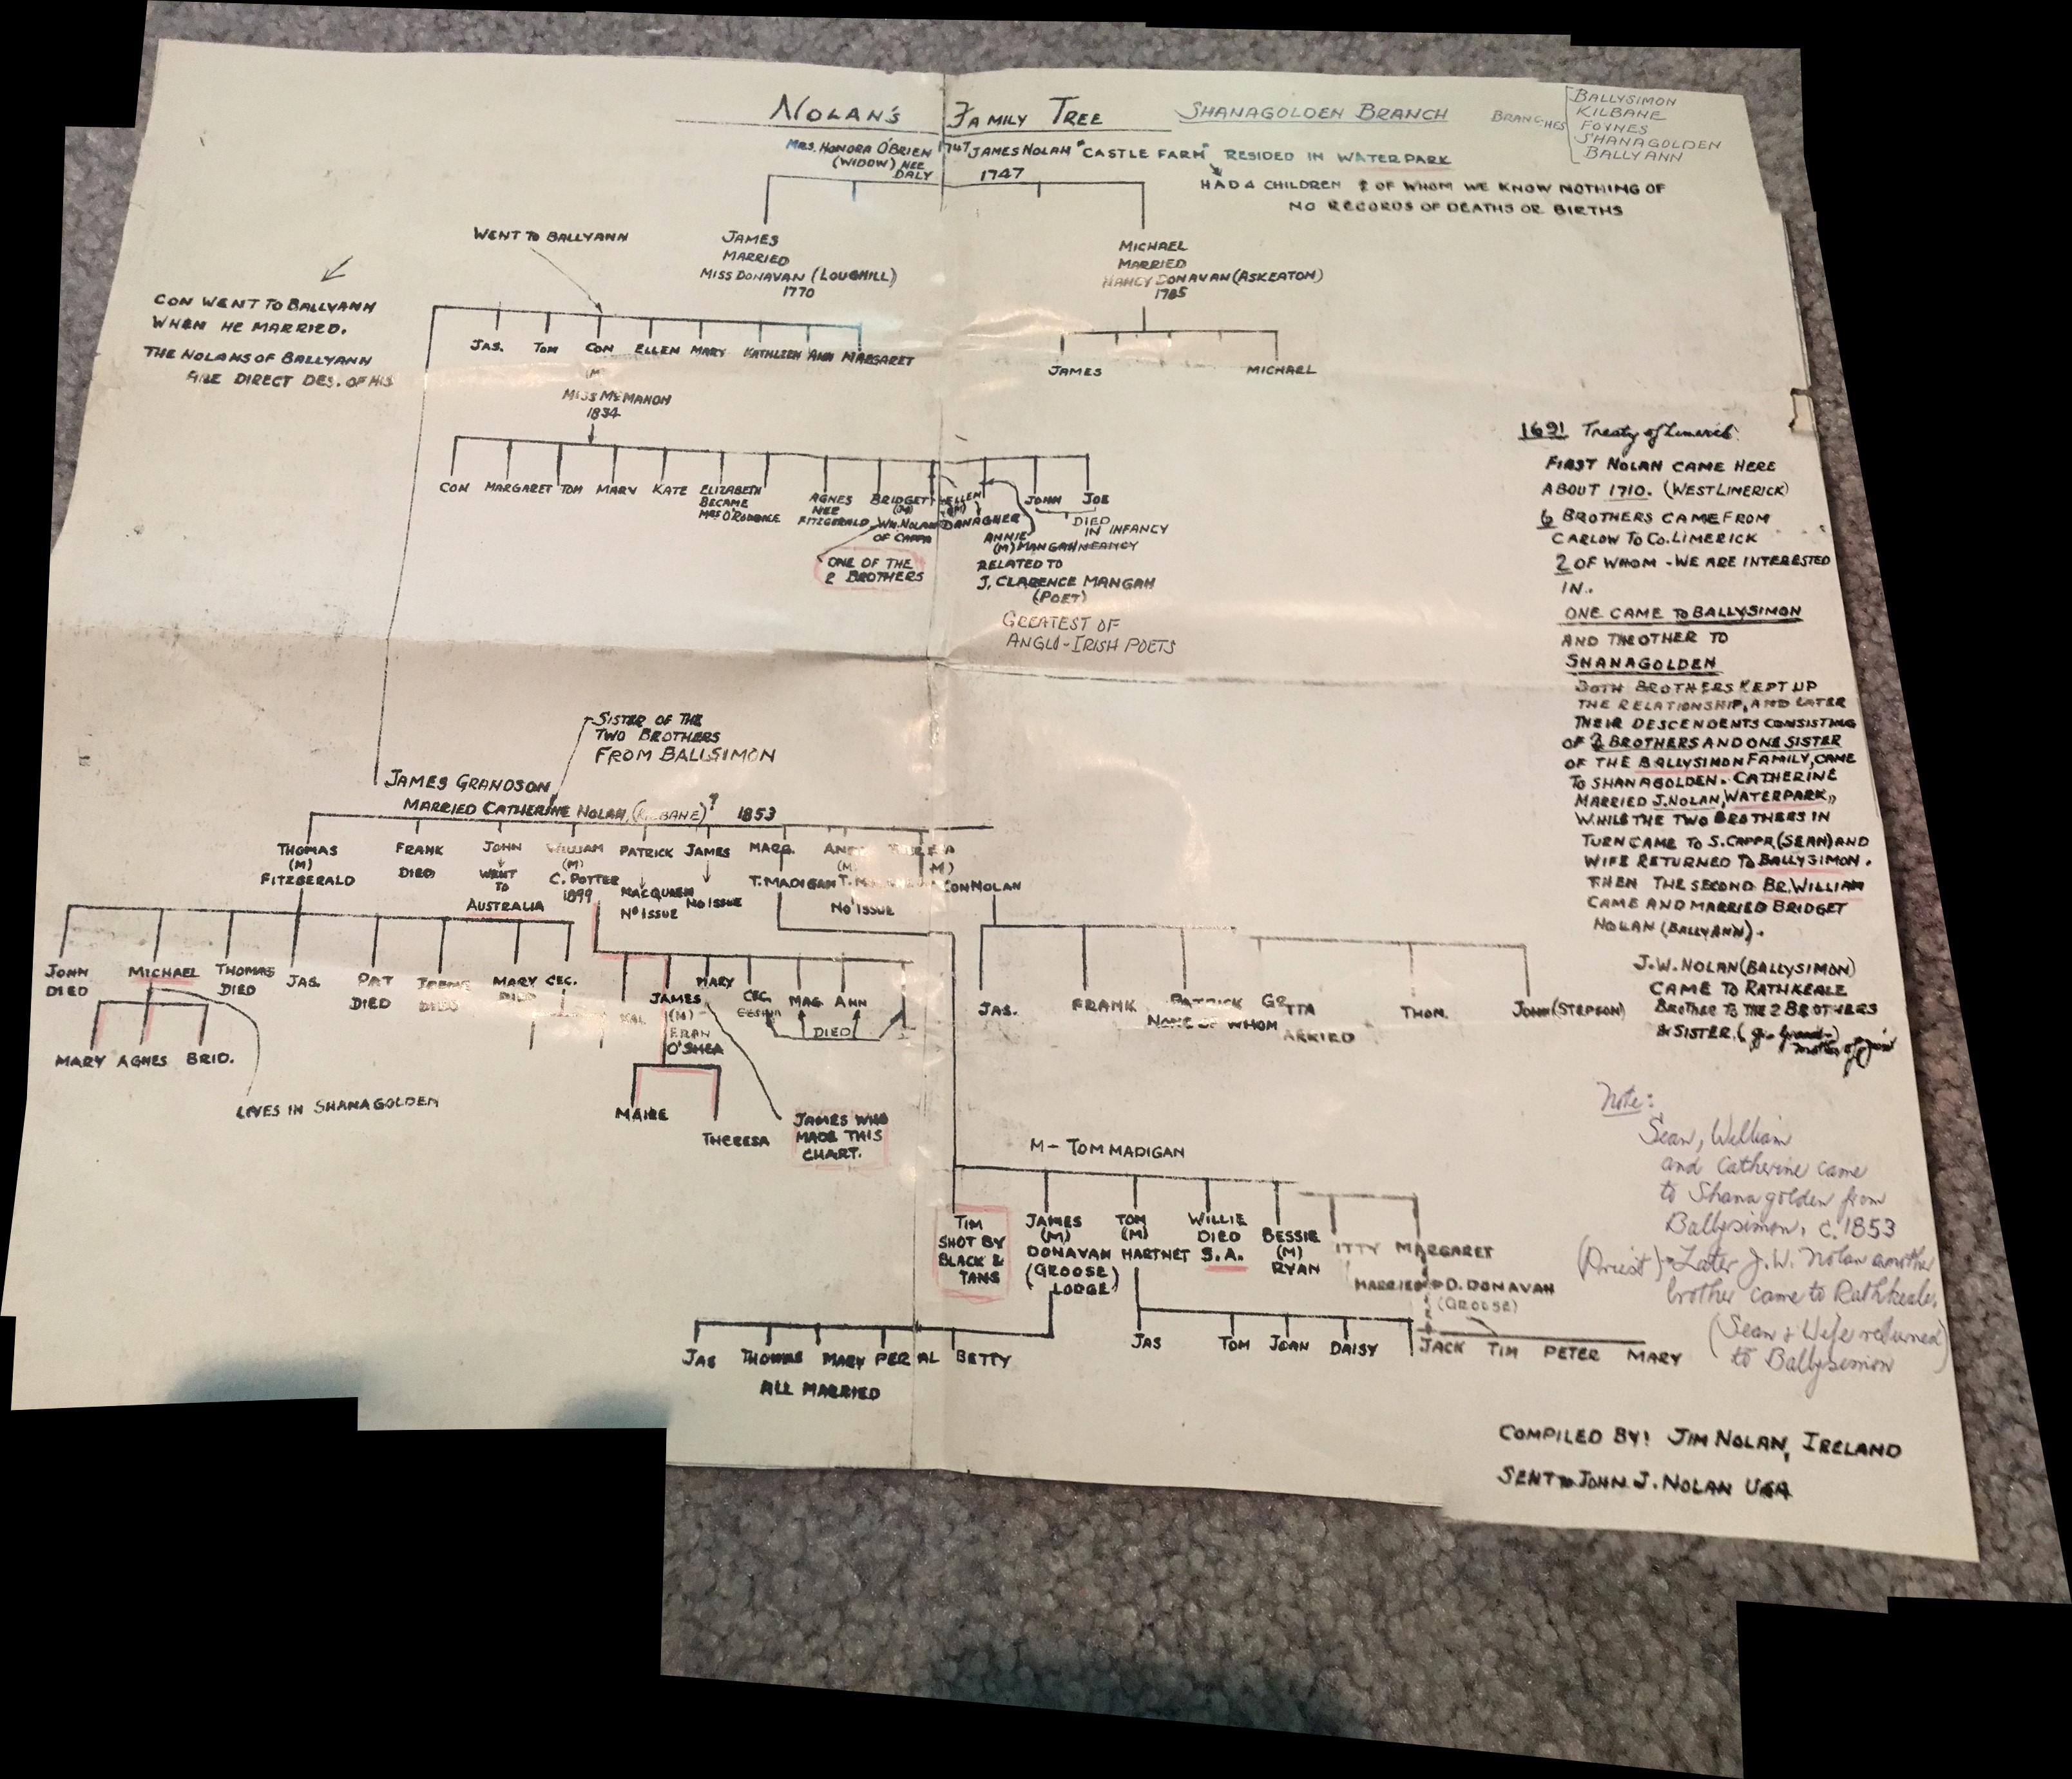 NOLAN'S FAMILY TREE
SHANAGOLDEN BRANCH
BRANCHES
BALLYSIMON
KILBANE
FOYNES
SHANAGOLDEN
BALLYANN
MRS. HONORA O'BRIEN 1747 JAMES NOLAN "CASTLE FARM" RESIDED IN WATERPARK
(WIDOW) NEE
DALY
1747
HAD 4 CHILDREN 2 OF WHOM WE KNOW NOTHING OF
NO RECORDS OF DEATHS OR BIRTHS
WENT TO BALLYANN
JAMES
MARRIED
MISS DONAVAN (LOUGHILL)
1770
MICHAEL
MARRIED
NANCY DONAVAN (ASKEATON)
1785
CON WENT TO BALLYANN
WHEN HE MARRIED.
THE NOLANS OF BALLYANN
ARE DIRECT DES. OF HIS
JAS. TOM CON ELLEN MARY KATHLEEN ANN MARGARET
(M)
MISS McMAHON
1834
JAMES MICHAEL
CON MARGARET TOM MARY KATE
ELIZABETH
BECAME
MRS O'RODNKE
AGNES
NEE
FITZGERALD
BRIDGET
(M)
WM. NOLAN
OF CAPPA
ONE OF THE
2 BROTHERS
ELLEN
(M)
DANAGHER
ANNIE
(M) MANGAN INFANCY
RELATED TO
J. CLARENCE MANGAN
(POET)
GREATEST OF
ANGLO-IRISH POETS
JOHN JOE
DIED
IN INFANCY
1691 Treaty of Limerick.
FIRST NOLAN CAME HERE
ABOUT 1710. (WEST LIMERICK)
6 BROTHERS CAME FROM
CARLOW TO CO. LIMERICK
2 OF WHOM - WE ARE INTERESTED
IN..
ONE CAME TO BALLYSIMON
AND THE OTHER TO
SHANAGOLDEN
BOTH BROTHERS KEPT UP
THE RELATIONSHIP, AND LATER
THEIR DESCENDENTS CONSISTING
OF 2 BROTHERS AND ONE SISTER
OF THE BALLYSIMON FAMILY, CAME
TO SHANAGOLDEN. CATHERINE
MARRIED J. NOLAN, WATERPARK,,
WHILE THE TWO BROTHERS IN
TURN CAME TO S. CAPPA, (SEAN) AND
WIFE RETURNED TO BALLYSIMON.
THEN THE SECOND BR. WILLIAM
CAME AND MARRIED BRIDGET
NOLAN (BALLYANN).
J.W. NOLAN (BALLYSIMON)
CAME TO RATHKEALE
BROTHER TO THE 2 BROTHERS
& SISTER. (
SISTER OF THE
TWO BROTHERS
FROM BALLSIMON
JAMES GRANDSON
MARRIED CATHERINE NOLAN, (KILBANE)? 1853
THOMAS
(M)
FITZGERALD
FRANK
DIED
JOHN
WENT
TO
AUSTRALIA
WILLIAM
(M)
C. POTTER
1899
PATRICK
MACQUEEN
NO ISSUE
JAMES
NO ISSUE
MARG.
T. MADIGAN
(M)
NO ISSUE
(M)
CON NOLAN
JOHN
DIED
MICHAEL
THOMAS
DIED
JAS.
PAT
DIED
DIED
MARY
DIED
CEC.
MARY AGNES BRID.
LIVES IN SHANAGOLDEN
JAMES
(M)-
FRAN
O'SHEA
MARY
CEC.
MAG ANN
DIED
MAIRE
THERESA
JAMES WHO
MADE THIS
CHART.
JAS. FRANK PATRICK
NONE OF WHOM
THOM.
JOHN (STEPSON)
M- TOM MADIGAN
TIM
SHOT BY
BLACK &
TANS
JAMES
(M)
DONAVAN
(GROOSE)
LODGE
TOM
(M)
HARTNET
WILLIE
DIED
S.A.
BESSIE
(M)
RYAN
ITTY
MARGARET
MARRIED D. DONAVAN
(GROOSE)
JAS THOMAS MARY PER AL BETTY
ALL MARRIED
JAS TOM JOAN DAISY
JACK TIM PETER MARY
Note:
Sean, William
and Catherine came
to Shanagolden from
Ballysimon, c. 1853
(Priest) - Later J.W. Nolan another
brother came to Rathkeale.
(Sean & Wife returned)
to Ballysimon
COMPILED BY: JIM NOLAN, IRELAND
SENT TO JOHN J. NOLAN USA